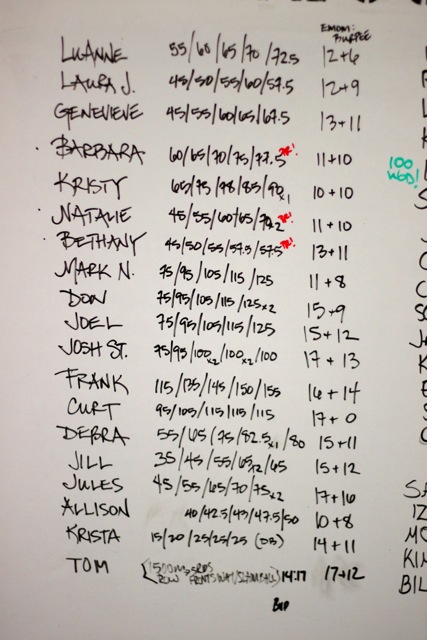 EMOM: BURPEE
LUANNE 55/60/65/70/72.5 12+6
LAURA J. 45/50/55/60/57.5 12+9
GENEVIEVE 45/55/60/65/67.5 13+11
BARBARA 60/65/70/75/77.5 PR! 11+10
KRISTY 65/75/78/85/90x1 10+10
NATALIE 45/55/60/65/70x2 PR! 11+10
BETHANY 45/50/55/57.5/57.5 PR! 13+11
MARK N. 75/95/105/115/125 11+8
DON 75/95/105/115/125x2 15+9
JOEL 75/95/105/115/125 15+12
JOSH ST. 75/95/100x2/100x2/100 17+13
FRANK 115/135/145/150/155 16+14
CURT 95/105/115/115/115 17+0
DEBRA 55/65/75/82.5x1/80 15+11
JILL 35/45/55/65x2/65 15+12
JULES 45/55/65/70/75x2 17+16
ALLISON 40/42.5/45/47.5/50 10+8
KRISTA 15/20/25/25/25 (DB) 14+11
TOM (1500m 3RDS ROW 14:17 17+12
100
WOD!